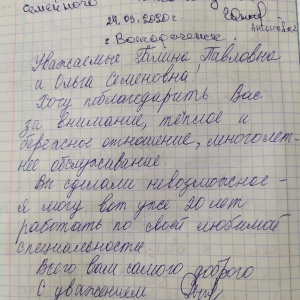 семейного
29.09.2020г.
Антонова
г. Волгореченск.
Уважаемые Галина Павловна
и Ольга Семеновна!
Хочу поблагодарить Вас
за внимание, тёплое и
бережное отношение, многолет-
нее обслуживание.
Вы сделали невозможное -
я могу вот уже 20 лет
работать по своей любимой
специальности.
Всего вам самого доброго
С уважением